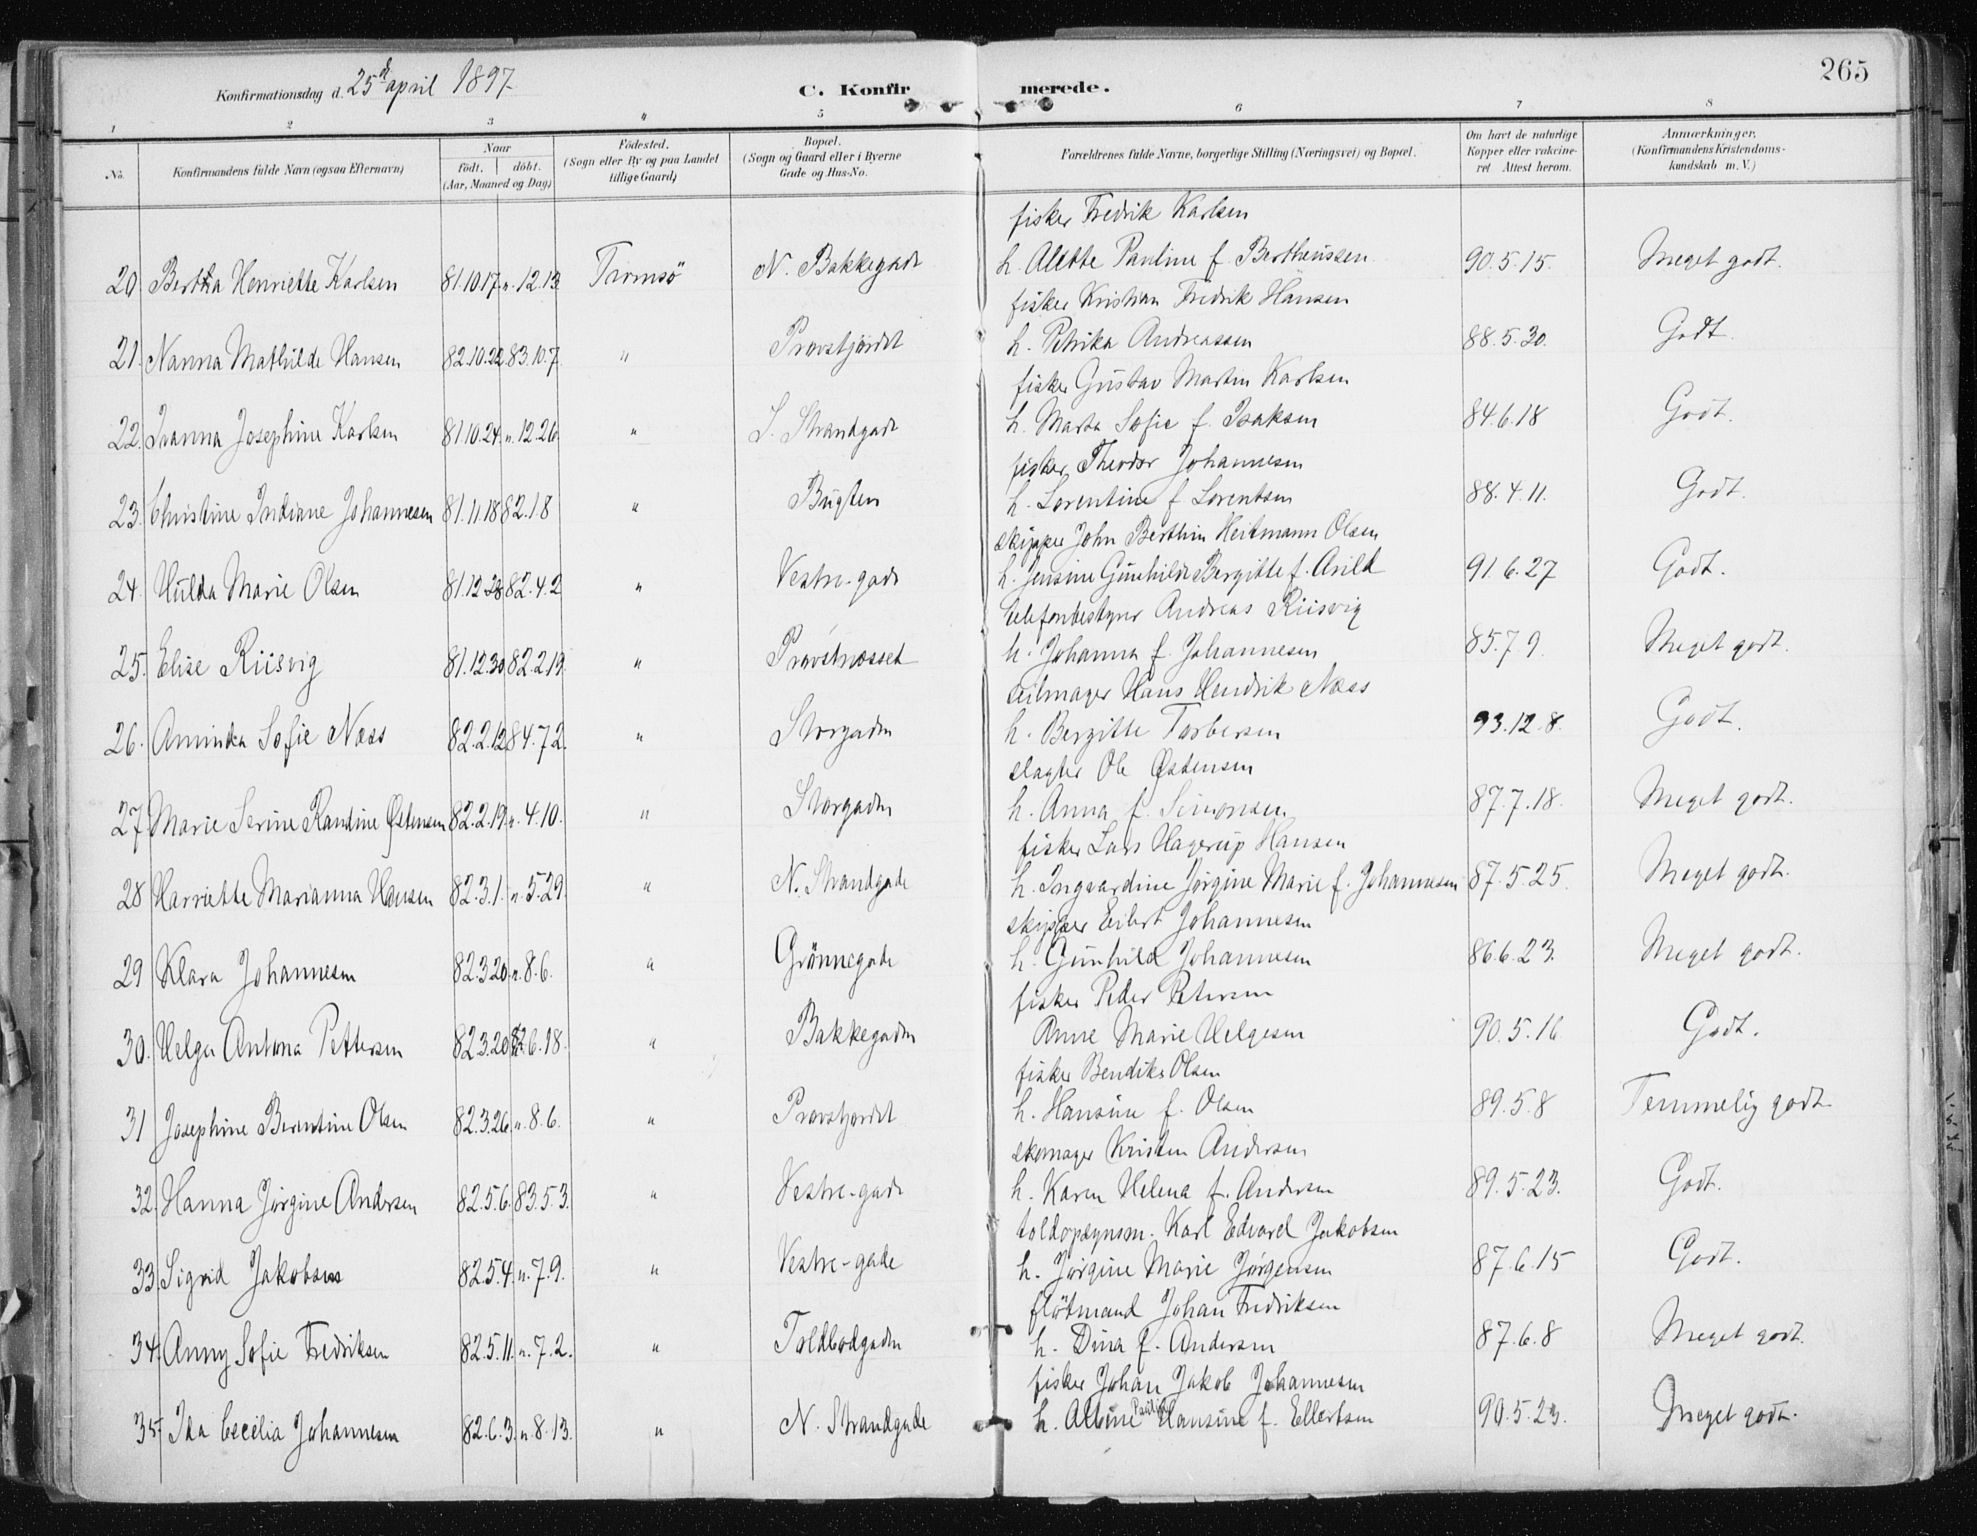 265
Konfirmationsdag d. 25de april 1897.
C. Konfirmerede.
1 2 3 4 5 6 7 8
No.
Konfirmandens fulde Navn (ogsaa Efternavn)
Naar
födt. döbt.
(Aar, Maaned og Dag)
Födested.
(Sogn eller By og paa Landet
tillige Gaard)
Bopæl.
(Sogn og Gaard eller i Byerne
Gade og Hus-No.
Forældrenes fulde Navne, borgerlige Stilling (Næringsvei) og Bopæl.
Om havt de naturlige
Kopper eller vakcine-
ret Attest herom.
Anmærkninger,
(Konfirmandens Kristendoms-
kundskab m. V.)
fisker Fredrik Karlsen
20. Bertha Henriette Karlsen 81.10.17 ". 12.13 Tromsö N. Bakkegade h. Alette Pauline f. Bertheussen 90.5.15. Meget godt.
fisker Kristian Fredrik Hansen
21. Nanna Mathilde Hansen 82.10.22 83.10.7 " Provstjordet h. Petrika Andreassen 88.5.30. Godt.
fisker Gustav Martin Karlsen
22. Ivanna Josephine Karlsen 81.10.24 ". 12.26. " S. Strandgade h. Marta Sofie f. Isaksen 84.6.18 Godt.
fisker Theodor Johannesen
23. Christine Indiane Johannesen 81.11.18 82.1.8 " Bugten h. Lorentine f Lorentsen 88.4.11. Godt.
skipper John Berthin Heitmann Olsen
24. Hulda Marie Olsen 81.12.28 82.4.2 " Vestre-gade h. Jensine Gunhilde Bergitte f. Arild 91.6.27 Godt.
telefonbestyrer Andreas Riisvig
25. Elise Riisvig 81.12.30 82.2.19. " Provstnesset h. Johanna f. Johannesen 85.7.9. Meget godt.
seilmager Hans Hendrik Næss
26. Aminda Sofie Næss 82.2.12 84.7.2. " Storgaden h. Bergitte Torbersen 93.12.8. Godt.
slagter Ole Østensen
27. Marie Serine Randine Østensen 82.2.19 ". 4.10. " Storgaden h. Anna f. Simonsen 87.7.18. Meget godt.
fisker Lars Hagerup Hansen
28 Harriette Marianna Hansen 82.3.1. ". 5.29. " N. Strandgade h. Ingvardine Jørgine Marie f. Johannesen 87.5.25. Meget godt.
skipper Eilert Johannesen
29 Klara Johannesen 82.3.20 ". 8.6. " Grönnegade h. Gunhild Johannesen 86.6.23. Meget godt.
fisker Peder Petersen
30. Helga Antona Pettersen 82.3.20 82.6.18. " Bakkegaden Anne Marie Helgesen 90.5.16 Godt.
fisker Bendiks Olsen
31 Josephine Berentine Olsen 82.3.26 ". 8.6. " Provstjordet h. Hansine f. Olsen 89.5.8 Temmelig godt.
skomager Kristen Andersen
32. Hanna Jørgine Andersen 82.5.6. 83.5.3. " Vestre-gade h. Karen Helena f. Andersen 89.5.23. Godt.
toldopsynsm. Karl Edvard Jakobsen
33. Sigrid Jakobsen 82.5.4. ". 7.9. " Vestre-gade h. Jørgine Marie Jørgensen 87.6.15 Godt.
flötmand Johan Fredriksen
34. Anny Sofie Fredriksen 82.5.11. ". 7.2. " Toldbodgaden h. Dina f. Andersen 87.6.8 Meget godt.
fisker Johan Jakob Johannesen
35. Ida Cecelia Johannesen 82.6.3. ". 8.13. " N. Strandgade h. Albine Pauline Hansine f. Ellertsen 90.5.23. Meget godt.